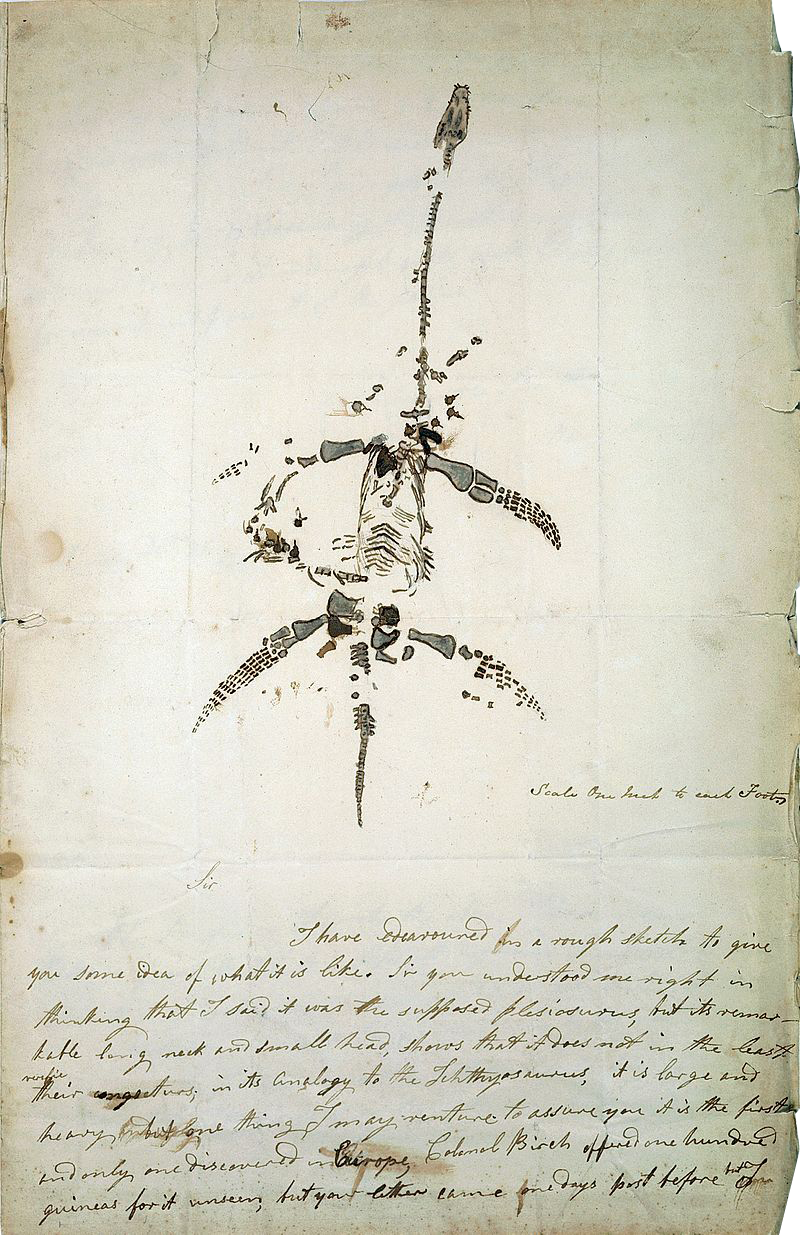 Scale One Inch to each Foot
Sir
I have edearoured in a rough sketch to give
you some idea of what it is like. Sir you understood me right in
thinking that I said it was the supposed plesiosurus, but its remar-
kable long neck and small head, shows that it does not in the least
verefie
their in its analogy to the Ichthyosaurus, it is large and
heavy but one thing I may venture to assure you it is the first
and only one discovered in Europe, Colonel Birch offered one hundred
guineas for it unseen, but your letter came one days post before